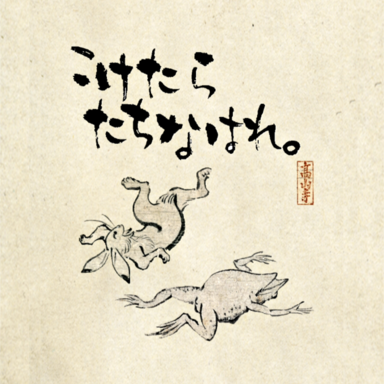 こけたら
たちなはれ。